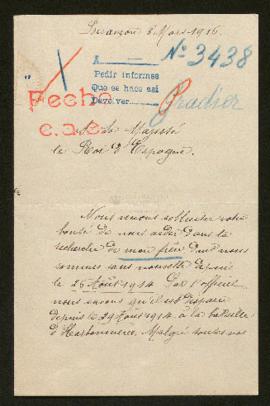 Besançon 8 Mars 1916.
Nº 3438
A
Pedir informes
Que se hace así
Devolver
Gradier
Fecho
c.a.e.
Sa Majesté
le Roi d'Espagne.
Nous venons solliciter votre
bonté de nous aider dans la
recherche de mon frère dont nous
sommes sans nouvelle depuis
le 26 Août 1914
nous savons qu'il est disparu
depuis le 29 Août 1914 à la bataille
d'Harbonnières. Malgré toutes nos